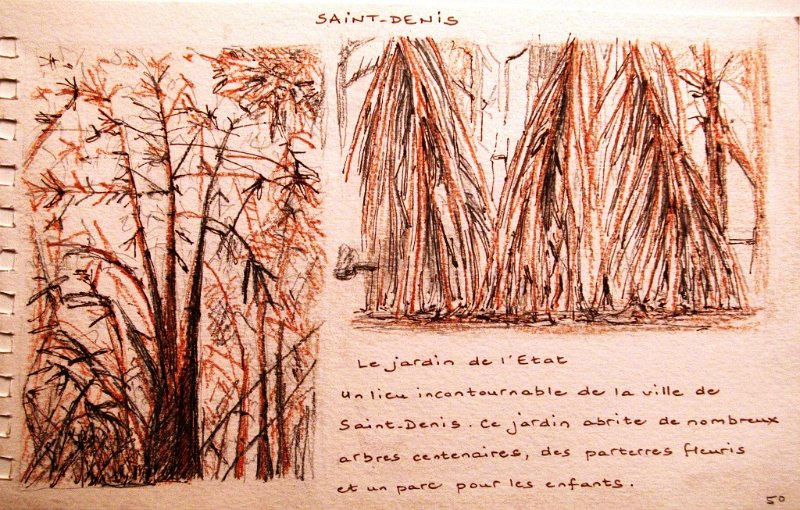 SAINT-DENIS
Le jardin de l'Etat
un lieu incontournable de la ville de
Saint-Denis. Ce jardin abrite de nombreux
arbres centenaires, des parterres fleuris
et un parc pour les enfants.
50